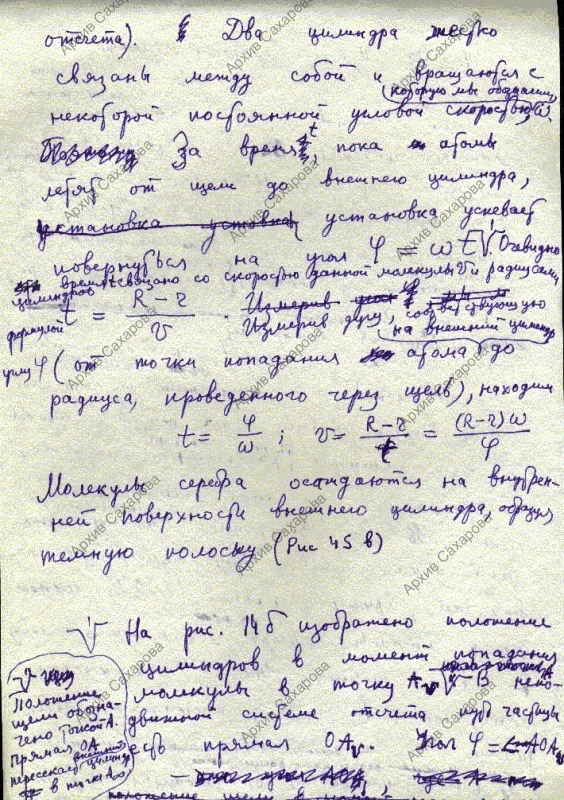 отсчета). Два цилиндра жестко
связаны между собой и вращаются с
(которую мы обозначим
некоторой постоянной угловой скоростью ω.
За время t, пока атомы
летят от щели до внешнего цилиндра,
установка успевает
повернуться на угол φ = ωt √ Очевидно
время t связано со скоростью данной молекулы v и радиусами
цилиндров
формулой
t = (R − r)/v . Измерив дугу, соответствующую
на внешнем цилиндре
углу φ (от точки попадания атома до
радиуса, проведенного через щель), находим
t = φ/ω ; v = (R − r)/t = (R − r)ω/φ
Молекулы серебра осаждаются на внутрен-
ней поверхности внешнего цилиндра, образуя
темную полоску (Рис 45 в)
√ На рис. 14 б изображено положение
цилиндров в момент попадания
молекулы в точку Av √ В непо-
движной системе отсчета путь частицы
есть прямая OAv. Угол φ = AOAv
Положение
щели обозна-
чено точкой A.
Прямая OA
пересекает внешний
в точке
Архив Сахарова